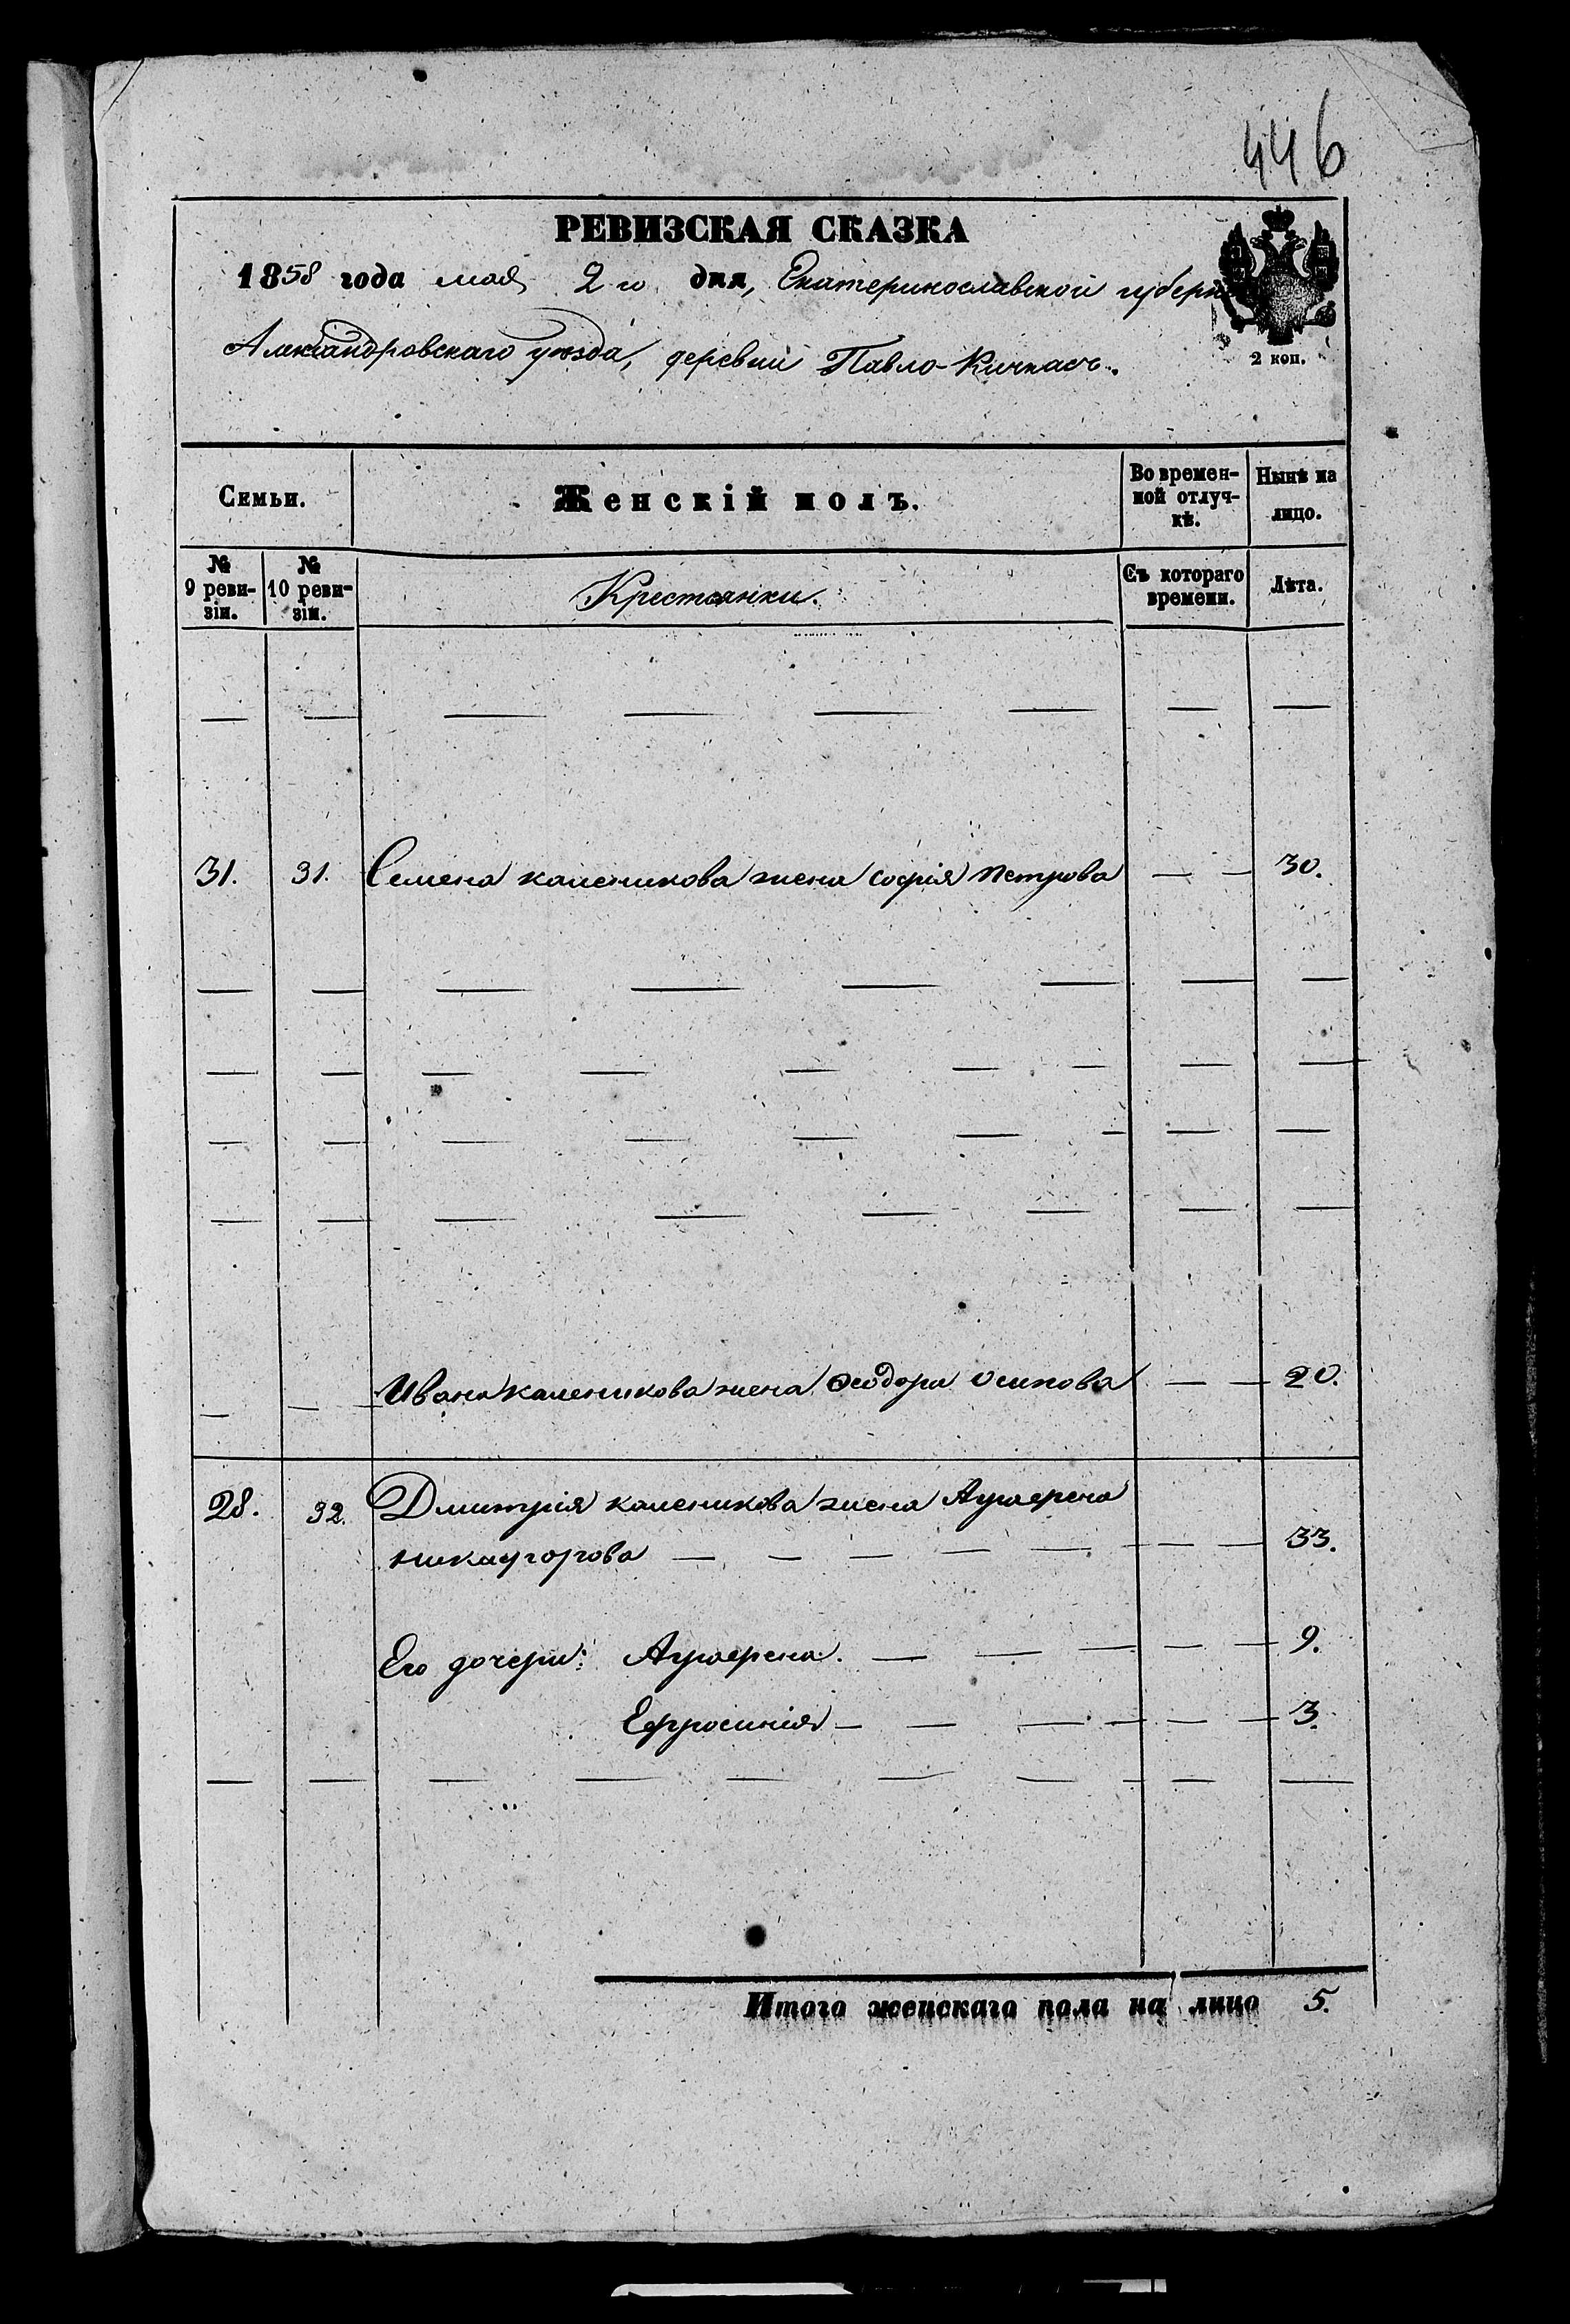 446
РЕВИЗСКАЯ СКАЗКА
1858 года мая 2го дня, Екатеринославской губерн
Александровскаго уезда, деревни Павло-Кичкасъ.
2 коп.
Семьи. Женскій полъ. Во времен- Нынѣ на
ной отлуч- лицо.
кѣ.
№ № Съ котораго Лѣта.
9 реви- 10 реви- Крестьянки. времени.
зіи. зіи.
— — — — — — — —
31. 31. Семена каленикова жена софія петрова — — 30.
— — — — — — — —
— — — — — — — — —
— — — — — — — — —
— — — — — — — —
— — — Ивана каленикова жена Ѳеодора осипова — — 20.
28. 32. Дмитрія каленикова жена Аграфена
никафорова — — — — — — — — 33.
Его дочери: Аграфена. — — — — — 9.
Ефросинія — — — — — — 3.
— — — — — — — — — —
Итого женскаго пола на лицо 5.